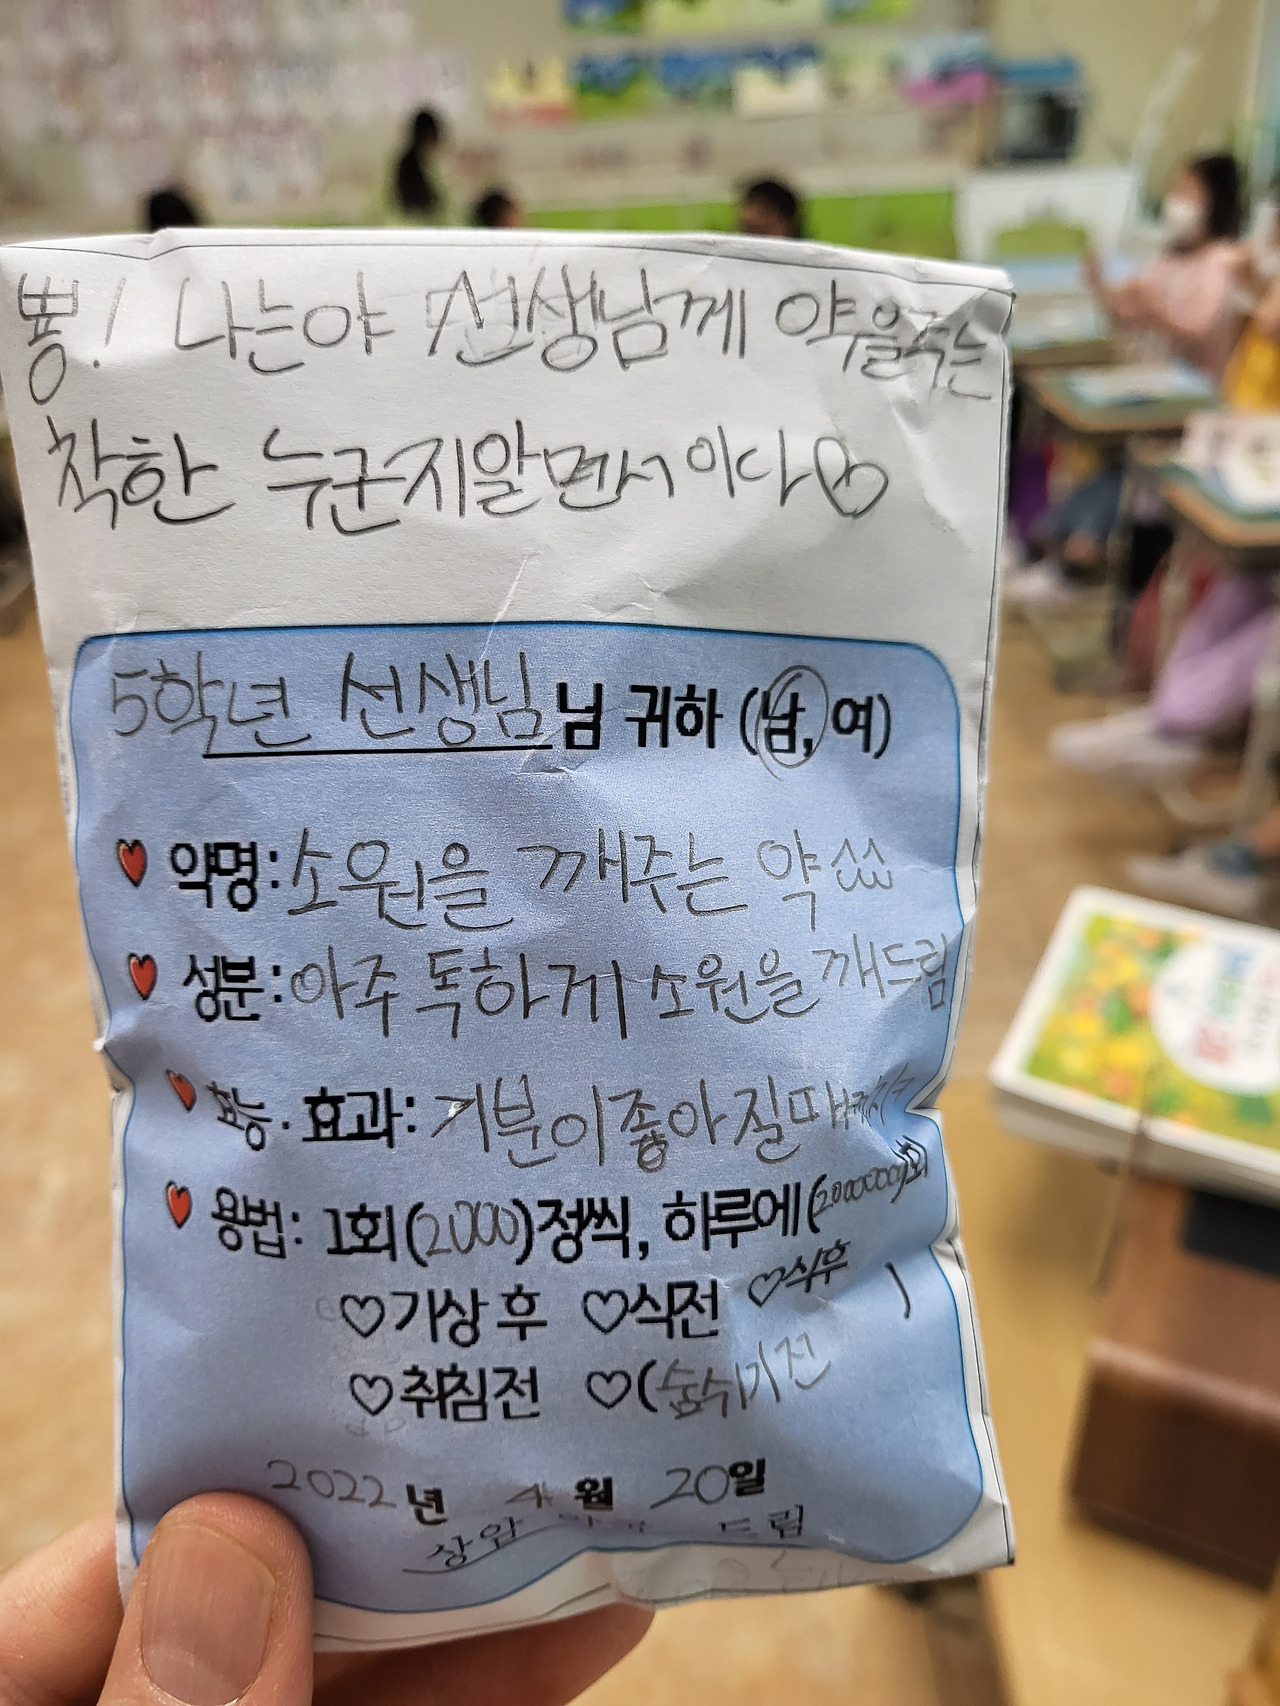 뿅! 나는야 선생님께 약을주는
착한 누군지알면서이다
5학년 선생님님 귀하 (남, 여)
약명: 소원을 깨주는 약
성분: 아주 독하게 소원을 깨드림
효능·효과: 기분이좋아질때까지
용법: 1회(2000)정씩, 하루에(
♡기상 후 ♡식전 ♡식후 )
♡취침전 ♡(숨쉬기전
2022년 4월 20일
상암 드림